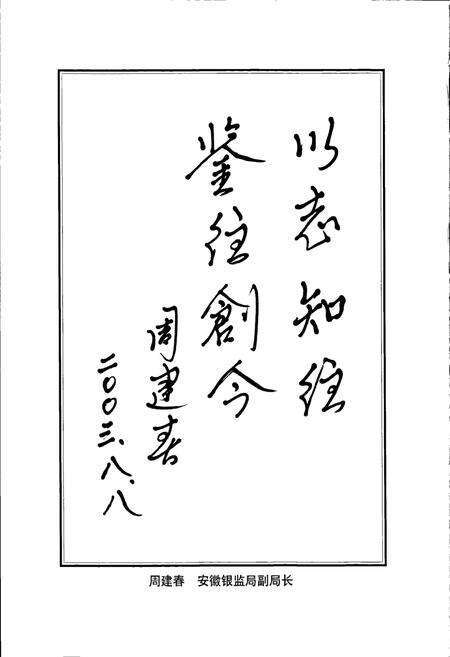 以志知往
鉴往創今
周建春
二〇〇三、八、八
周建春　安徽银监局副局长